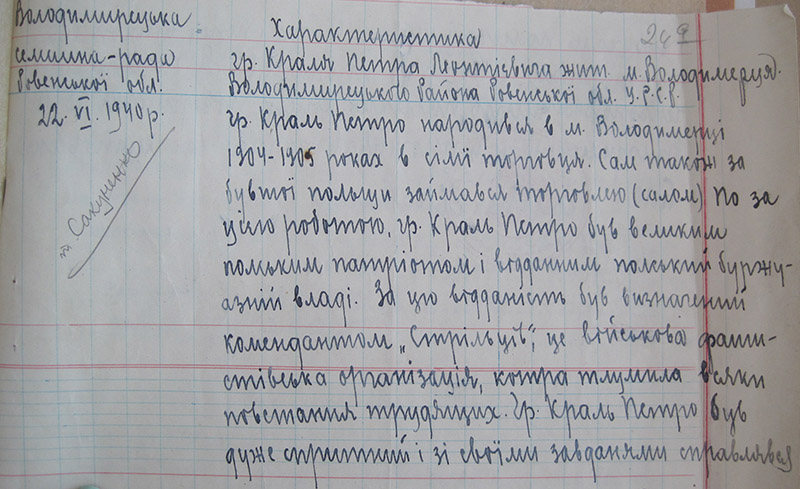 Володимирецька
селищна-рада
Ровенської обл.
22. VI. 1940 р.
тт. Сакуненко
249
Характеристика
гр. Краля Петра Леонтієвича жит. м. Володимерця.
Володимирецького Района Ровенської обл. У.Р.С.Р.
гр. Краль Петро народився в м. Володимерці
1904-1905 роках в сімїі торговця. Сам також за
бувшої польщи займався торговлею (салом) По за
цією роботою, гр. Краль Петро був великим
польким патріотом і відданним польский буржу-
азній владі. За цю відданість був визначений
комендантом „Стрільців", це військова фаши-
стівська організація, котра тлумила всяки
повстання трудящих. Гр. Краль Петро був
дуже спритний і зі своїми завданями справлявся